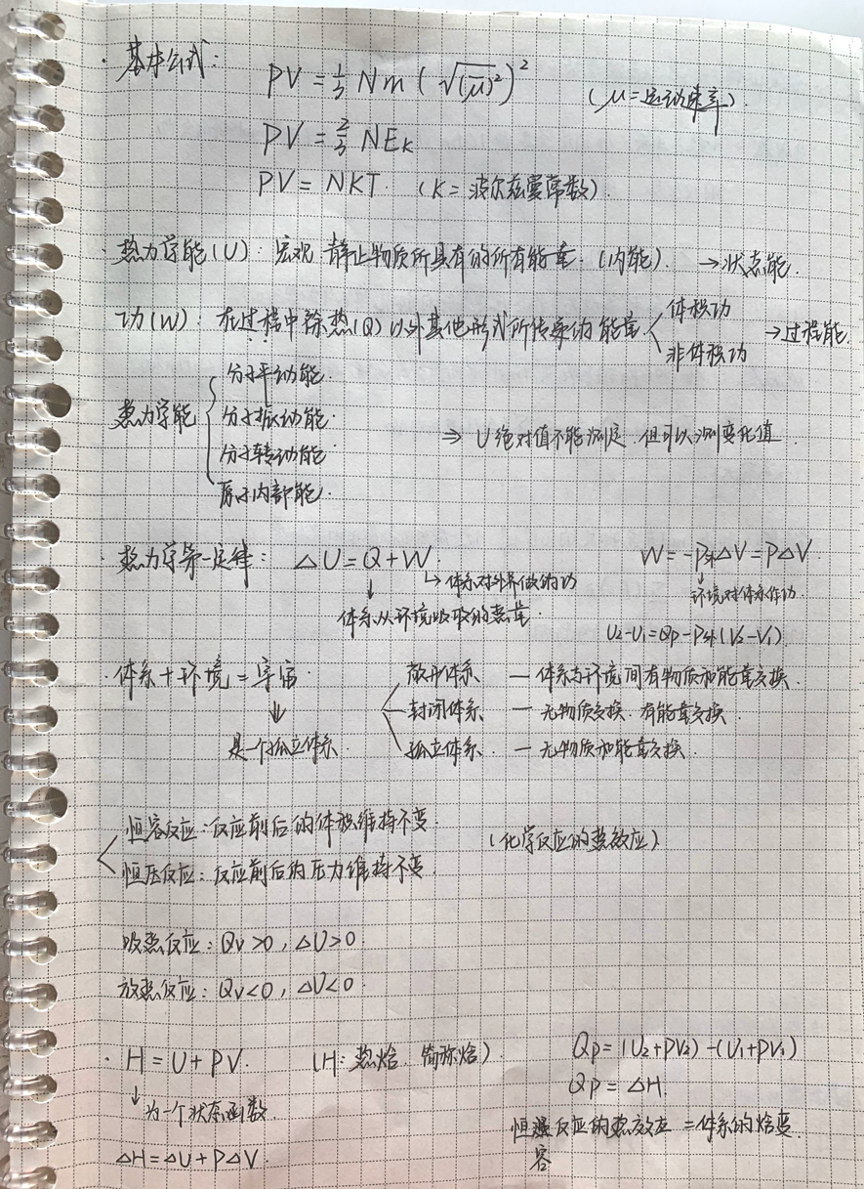 · 基本公式:
PV = 1/3 Nm ( √(μ̄)² )² (μ=运动速率).
PV = 2/3 NEK
PV = NKT. (K= 波尔兹曼常数).
· 热力学能(U): 宏观静止物质所具有的所有能量. (内能). →状态能.
功(W): 在过程中除热(Q)以外其他形式所传递的能量 < 体积功 非体积功 →过程能.
热力学能 {
分子平动能.
分子振动能.
分子转动能
原子内部能.
⇒ U绝对值不能测定, 但可以测变化值.
· 热力学第一定律: △U=Q+W. W=-P外△V=P△V.
↳体系对外界做的功
↓ 环境对体系作功.
体系从环境吸收的热量.
U2-U1=Qp-P外(V2-V1).
· 体系+环境=宇宙.
⇓
是一个孤立体系.
敞开体系 — 体系与环境间有物质和能量交换.
封闭体系 — 无物质交换. 有能量交换.
孤立体系. — 无物质和能量交换.
恒容反应: 反应前后的体积维持不变.
恒压反应: 反应前后的压力维持不变.
(化学反应的热效应)
吸热反应: Qv>0, △U>0.
放热反应: Qv<0, △U<0.
· H=U+PV. (H: 热焓. 简称焓).
↓
为一个状态函数.
△H=△U+P△V.
Qp=(U2+PV2)-(U1+PV1)
Qp=△H.
恒反应的热效应=体系的焓变.
容